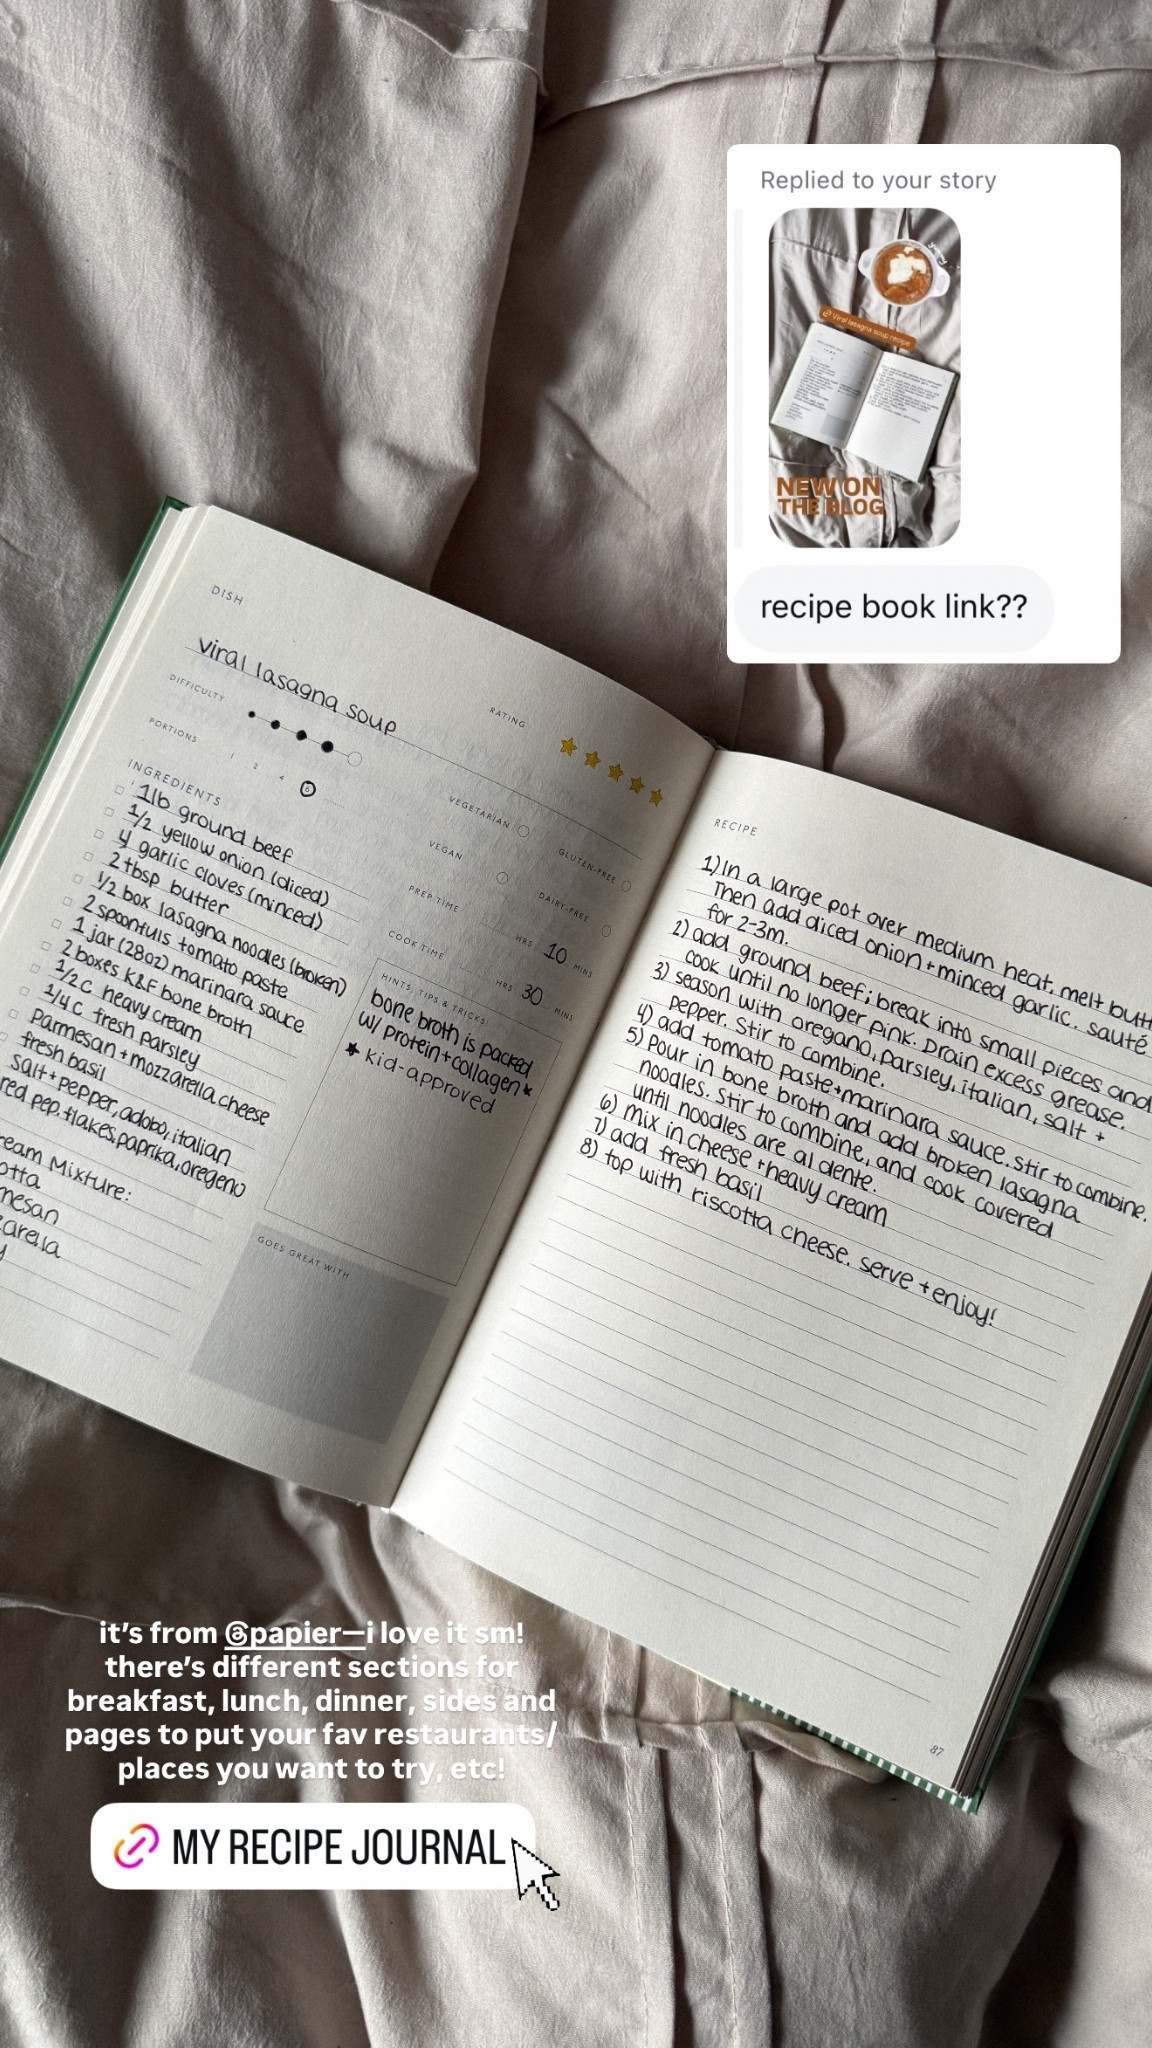 Replied to your story
Viral lasagna soup recipe
NEW ON
THE BLOG
recipe book link??
DISH
viral lasagna soup
DIFFICULTY
RATING
PORTIONS
1 2 4 6
VEGETARIAN
GLUTEN-FREE
VEGAN
DAIRY-FREE
PREP TIME
HRS 10 MINS
COOK TIME
HRS 30 MINS
INGREDIENTS
1lb ground beef
1/2 yellow onion (diced)
4 garlic cloves (minced)
2 tbsp butter
1/2 box lasagna noodles (broken)
2 spoonfuls tomato paste
1 jar (28oz) marinara sauce
2 boxes K&F bone broth
1/2 c heavy cream
1/4 c fresh parsley
parmesan + mozzarella cheese
fresh basil
salt + pepper, adobo, italian
red pep. flakes, paprika, oregeno
eam Mixture:
otta
mesan
zarella
y
HINTS, TIPS & TRICKS
bone broth is packed
w/ protein + collagen*
* kid-approved
GOES GREAT WITH
RECIPE
1) In a large pot over medium heat, melt butt
Then add diced onion + minced garlic. sauté
for 2-3m.
2) add ground beef; break into small pieces and
cook until no longer pink. Drain excess grease.
3) season with oregano, parsley, italian, salt +
pepper. Stir to combine.
4) add tomato paste + marinara sauce. stir to combine.
5) pour in bone broth and add broken lasagna
noodles. Stir to combine, and cook covered
until noodles are al dente.
6) mix in cheese + heavy cream
7) add fresh basil
8) top with riscotta cheese. serve + enjoy!
87
it's from @papier—i love it sm!
there's different sections for
breakfast, lunch, dinner, sides and
pages to put your fav restaurants/
places you want to try, etc!
MY RECIPE JOURNAL